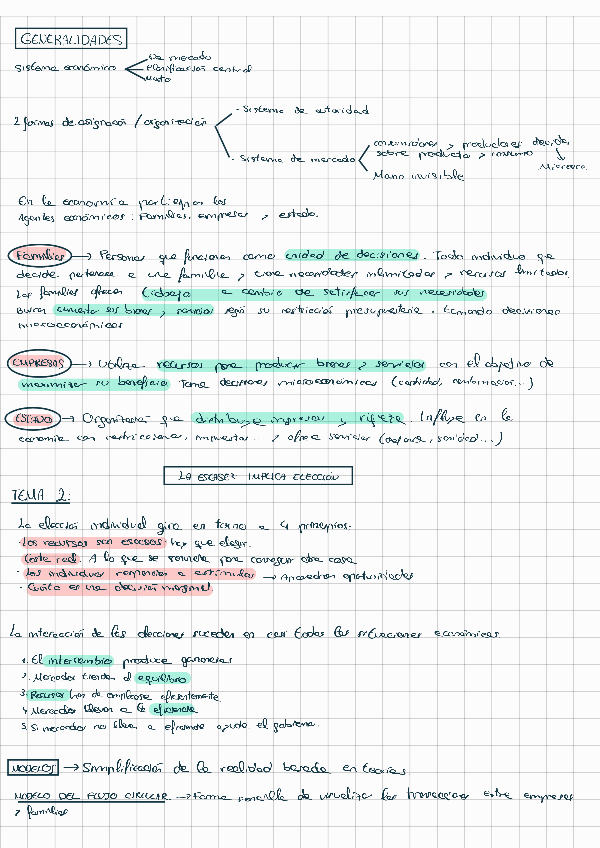 GENERALIDADES
Sistema económico
De mercado
Planificación central
Mixto
2 formas de asignación / organización
- Sistema de autoridad
- Sistema de mercado
consumidores y productores deciden
sobre producto y consumo
Microeco.
Mano invisible
En la economía participan los
Agentes económicos: Familias, empresas y estado.
Familias → Personas que funcionan como unidad de decisiones. Todo individuo que
decide pertenece a una familia y tiene necesidades ilimitadas y recursos limitados.
Las familias ofrecen trabajo a cambio de satisfacer sus necesidades
Buscan sus bienes y servicios según su restricción presupuestaria. Tomando decisiones
microeconómicas
EMPRESAS → Utiliza recursos para producir bienes y servicios con el objetivo de
maximizar su beneficio Toma decisiones microeconómicas (cantidad, combinación...)
ESTADO → Organización que distribuye ingresos y riqueza. Influye en la
economía con restricciones, impuestos... y ofrece servicios (defensa, sanidad...)
LA ESCASEZ IMPLICA ELECCIÓN
TEMA 2:
La elección individual gira en torno a 4 principios.
· Los recursos son escasos hay que elegir.
· Coste real. A lo que se renuncia para conseguir otra cosa
· Los individuos responden a estímulos → Aprovechan oportunidades
· Cuánto es una decisión marginal
La interacción de las elecciones suceden en casi todas las situaciones económicas
1. El intercambio produce ganancias
2. Mercados tienden al equilibrio
3. Recursos han de emplearse eficientemente
4. Mercados llevan a la eficiencia
5. Si mercados no llevan a eficiencia ayuda el gobierno.
MODELOS → Simplificación de la realidad basada en teorías
MODELO DEL FLUJO CIRCULAR → Forma sencilla de visualizar las transacciones entre empresas
y familias